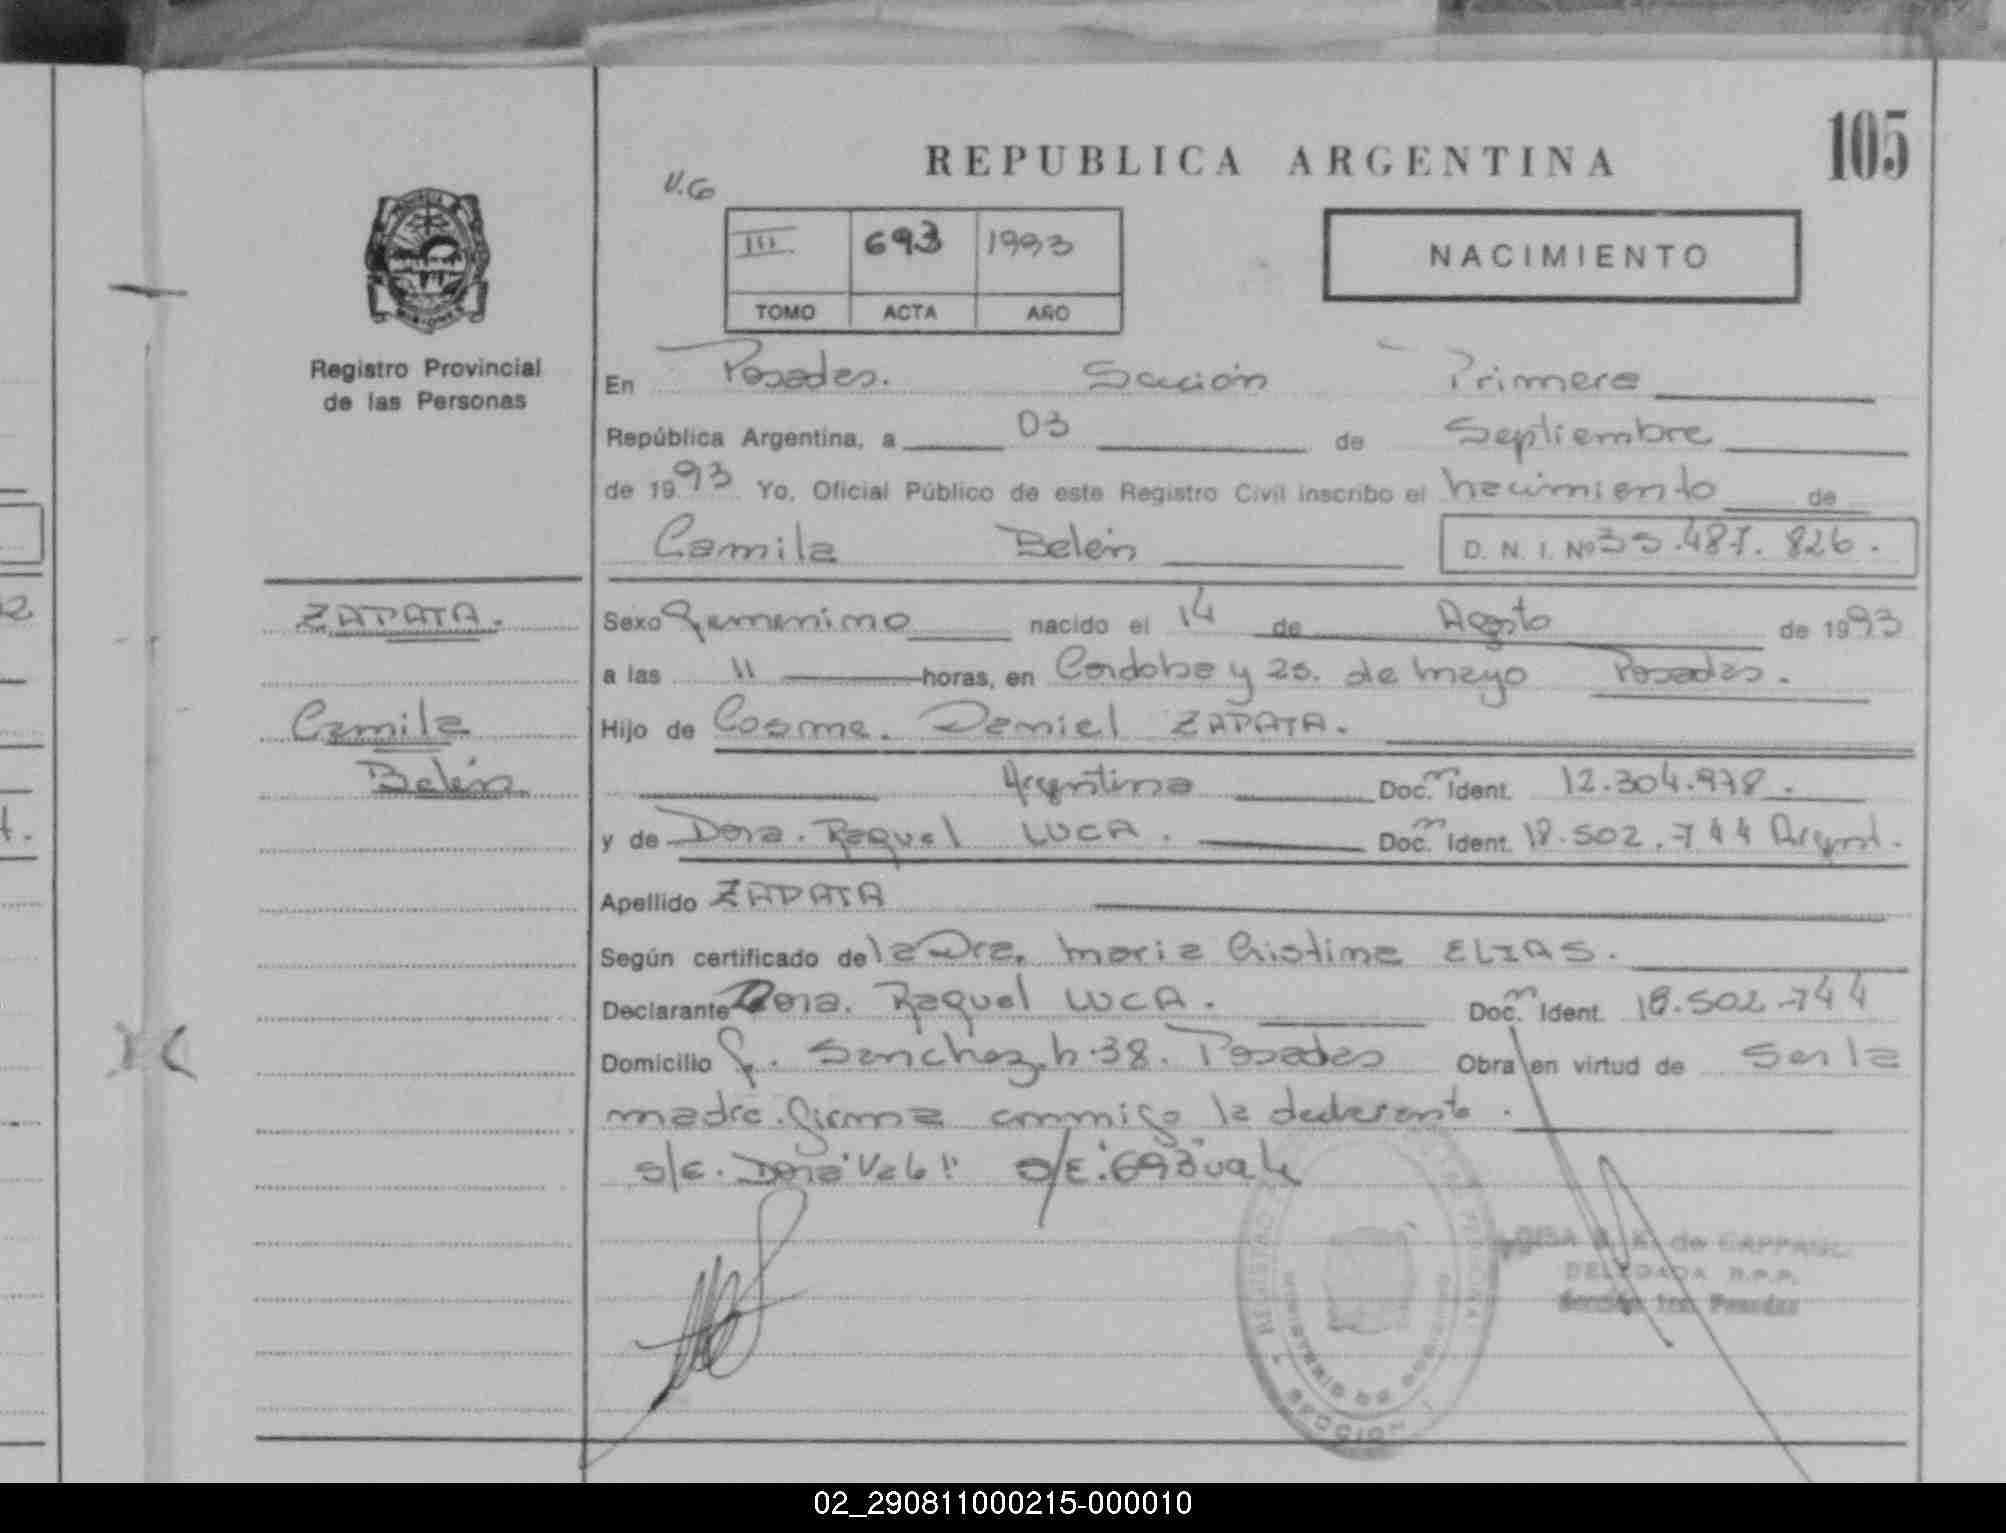 105
REPUBLICA ARGENTINA
V.G
III 693 1993
TOMO ACTA AÑO
NACIMIENTO
Registro Provincial
de las Personas
En Posadas. Sección Primera
República Argentina, a 03 de Septiembre
de 1993 Yo, Oficial Público de este Registro Civil inscribo el nacimiento de
Camila Belén D. N. I. Nº 35.487.826.
ZAPATA.
Camila
Belén
Sexo Femenino nacido el 14 de Agosto de 1993
a las 11 horas, en Cordoba y 25. de mayo Posadas.
Hijo de Cosme. Daniel ZAPATA.
Argentina Doc. Ident. 12.304.978.
y de Dora. Raquel LUCA. Doc. Ident. 18.502.744 Argent.
Apellido ZAPATA
Según certificado de la Dra. Maria Cristina ELIAS.
Declarante Dora. Raquel LUCA. Doc. Ident. 18.502.744
Domicilio F. Sanchez h.38. Posadas Obra en virtud de ser la
madre. firma conmigo la declarante.
s/e. Dora "Vale" s/E: "693" vale
DELEGADA R.P.P.
Sección 1ra Posadas
02_290811000215-000010